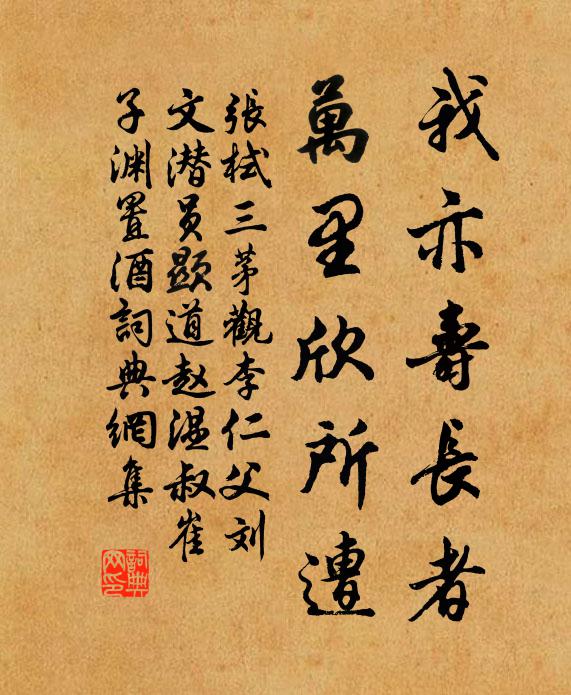 我亦壽長者
萬里欣所遭
張栻三茅觀李仁父刘
文潜員顯道赵温叔崔
子渊置酒詞典網集
詞典
网印